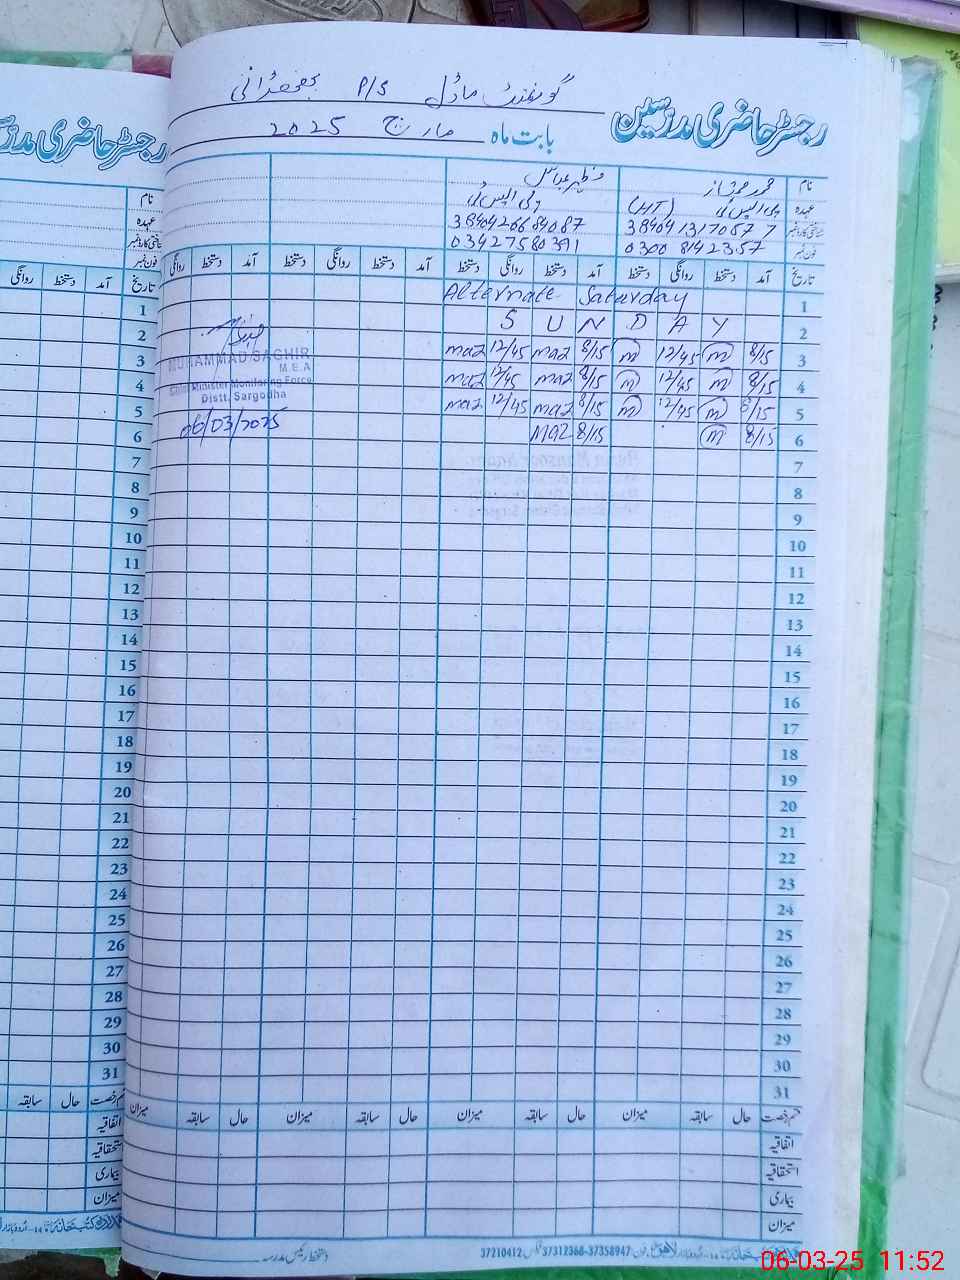 گورنمنٹ ماڈل P/S
رجسٹر حاضری مدرسین
بابت ماہ مارچ 2025
نام
عہدہ
شناختی کارڈ نمبر
فون نمبر
(HT)
3840426684087
0300 8142357
تاریخ آمد دستخط روانگی دستخط آمد دستخط روانگی دستخط آمد دستخط روانگی دستخط آمد دستخط روانگی
1 Alternate Saturday
2 S U N D A Y
3 8/15 m 12/45 m 8/15 maz 12/45 maz
4 8/15 m 12/45 m 8/15 maz 12/45 maz
5 8/15 m 12/45 m 8/15 maz 12/45 maz
6 8/15 m 8/15 maz
MUHAMMAD SAGHIR
M.E.A
Chief Minister Monitoring Force
Distt. Sargodha
06/03/2025
7
8
9
10
11
12
13
14
15
16
17
18
19
20
21
22
23
24
25
26
27
28
29
30
31
قسم رخصت حال سابقہ میزان حال سابقہ میزان حال سابقہ میزان حال سابقہ میزان
اتفاقیہ
استحقاقیہ
بیماری
میزان
دستخط رئیس مدرسہ
37210412 37312368-37358947
رجسٹر حاضری مدرسین
نام
عہدہ
شناختی کارڈ نمبر
فون نمبر
تاریخ آمد دستخط روانگی
1
2
3
4
5
6
7
8
9
10
11
12
13
14
15
16
17
18
19
20
21
22
23
24
25
26
27
28
29
30
31
قسم رخصت حال سابقہ
اتفاقیہ
استحقاقیہ
بیماری
میزان
06-03-25 11:52